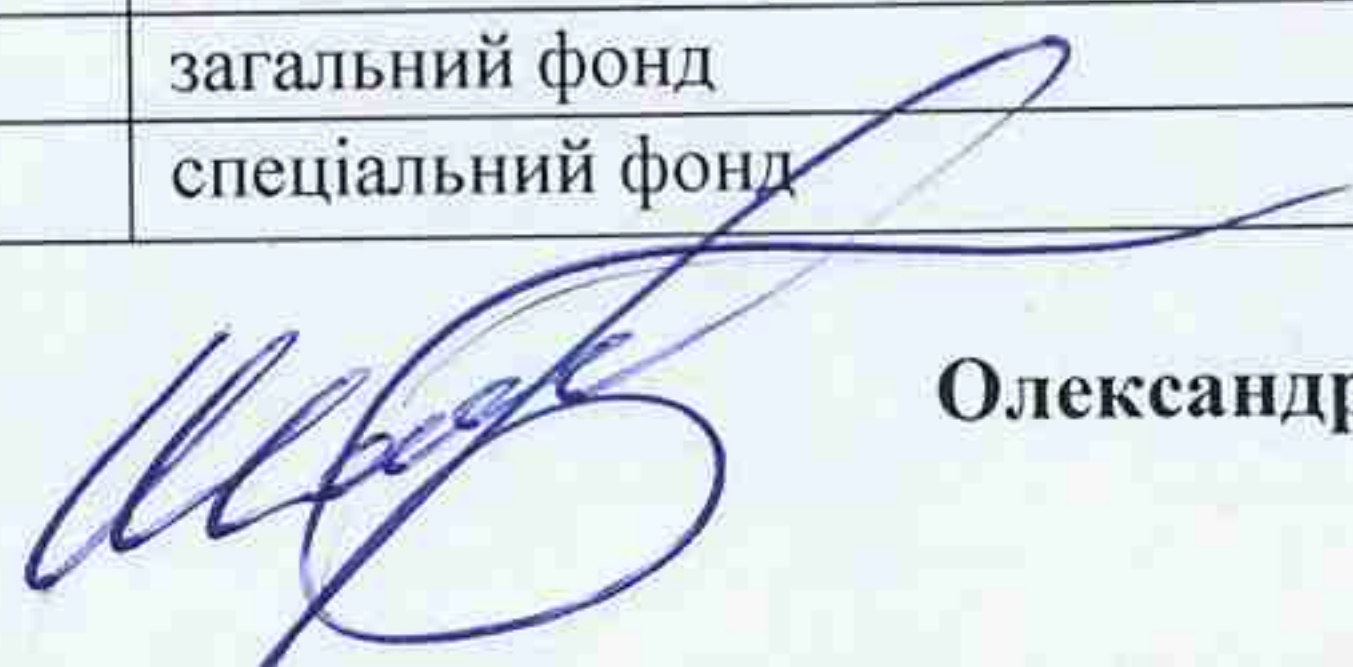 загальний фонд
спеціальний фонд
Олександр